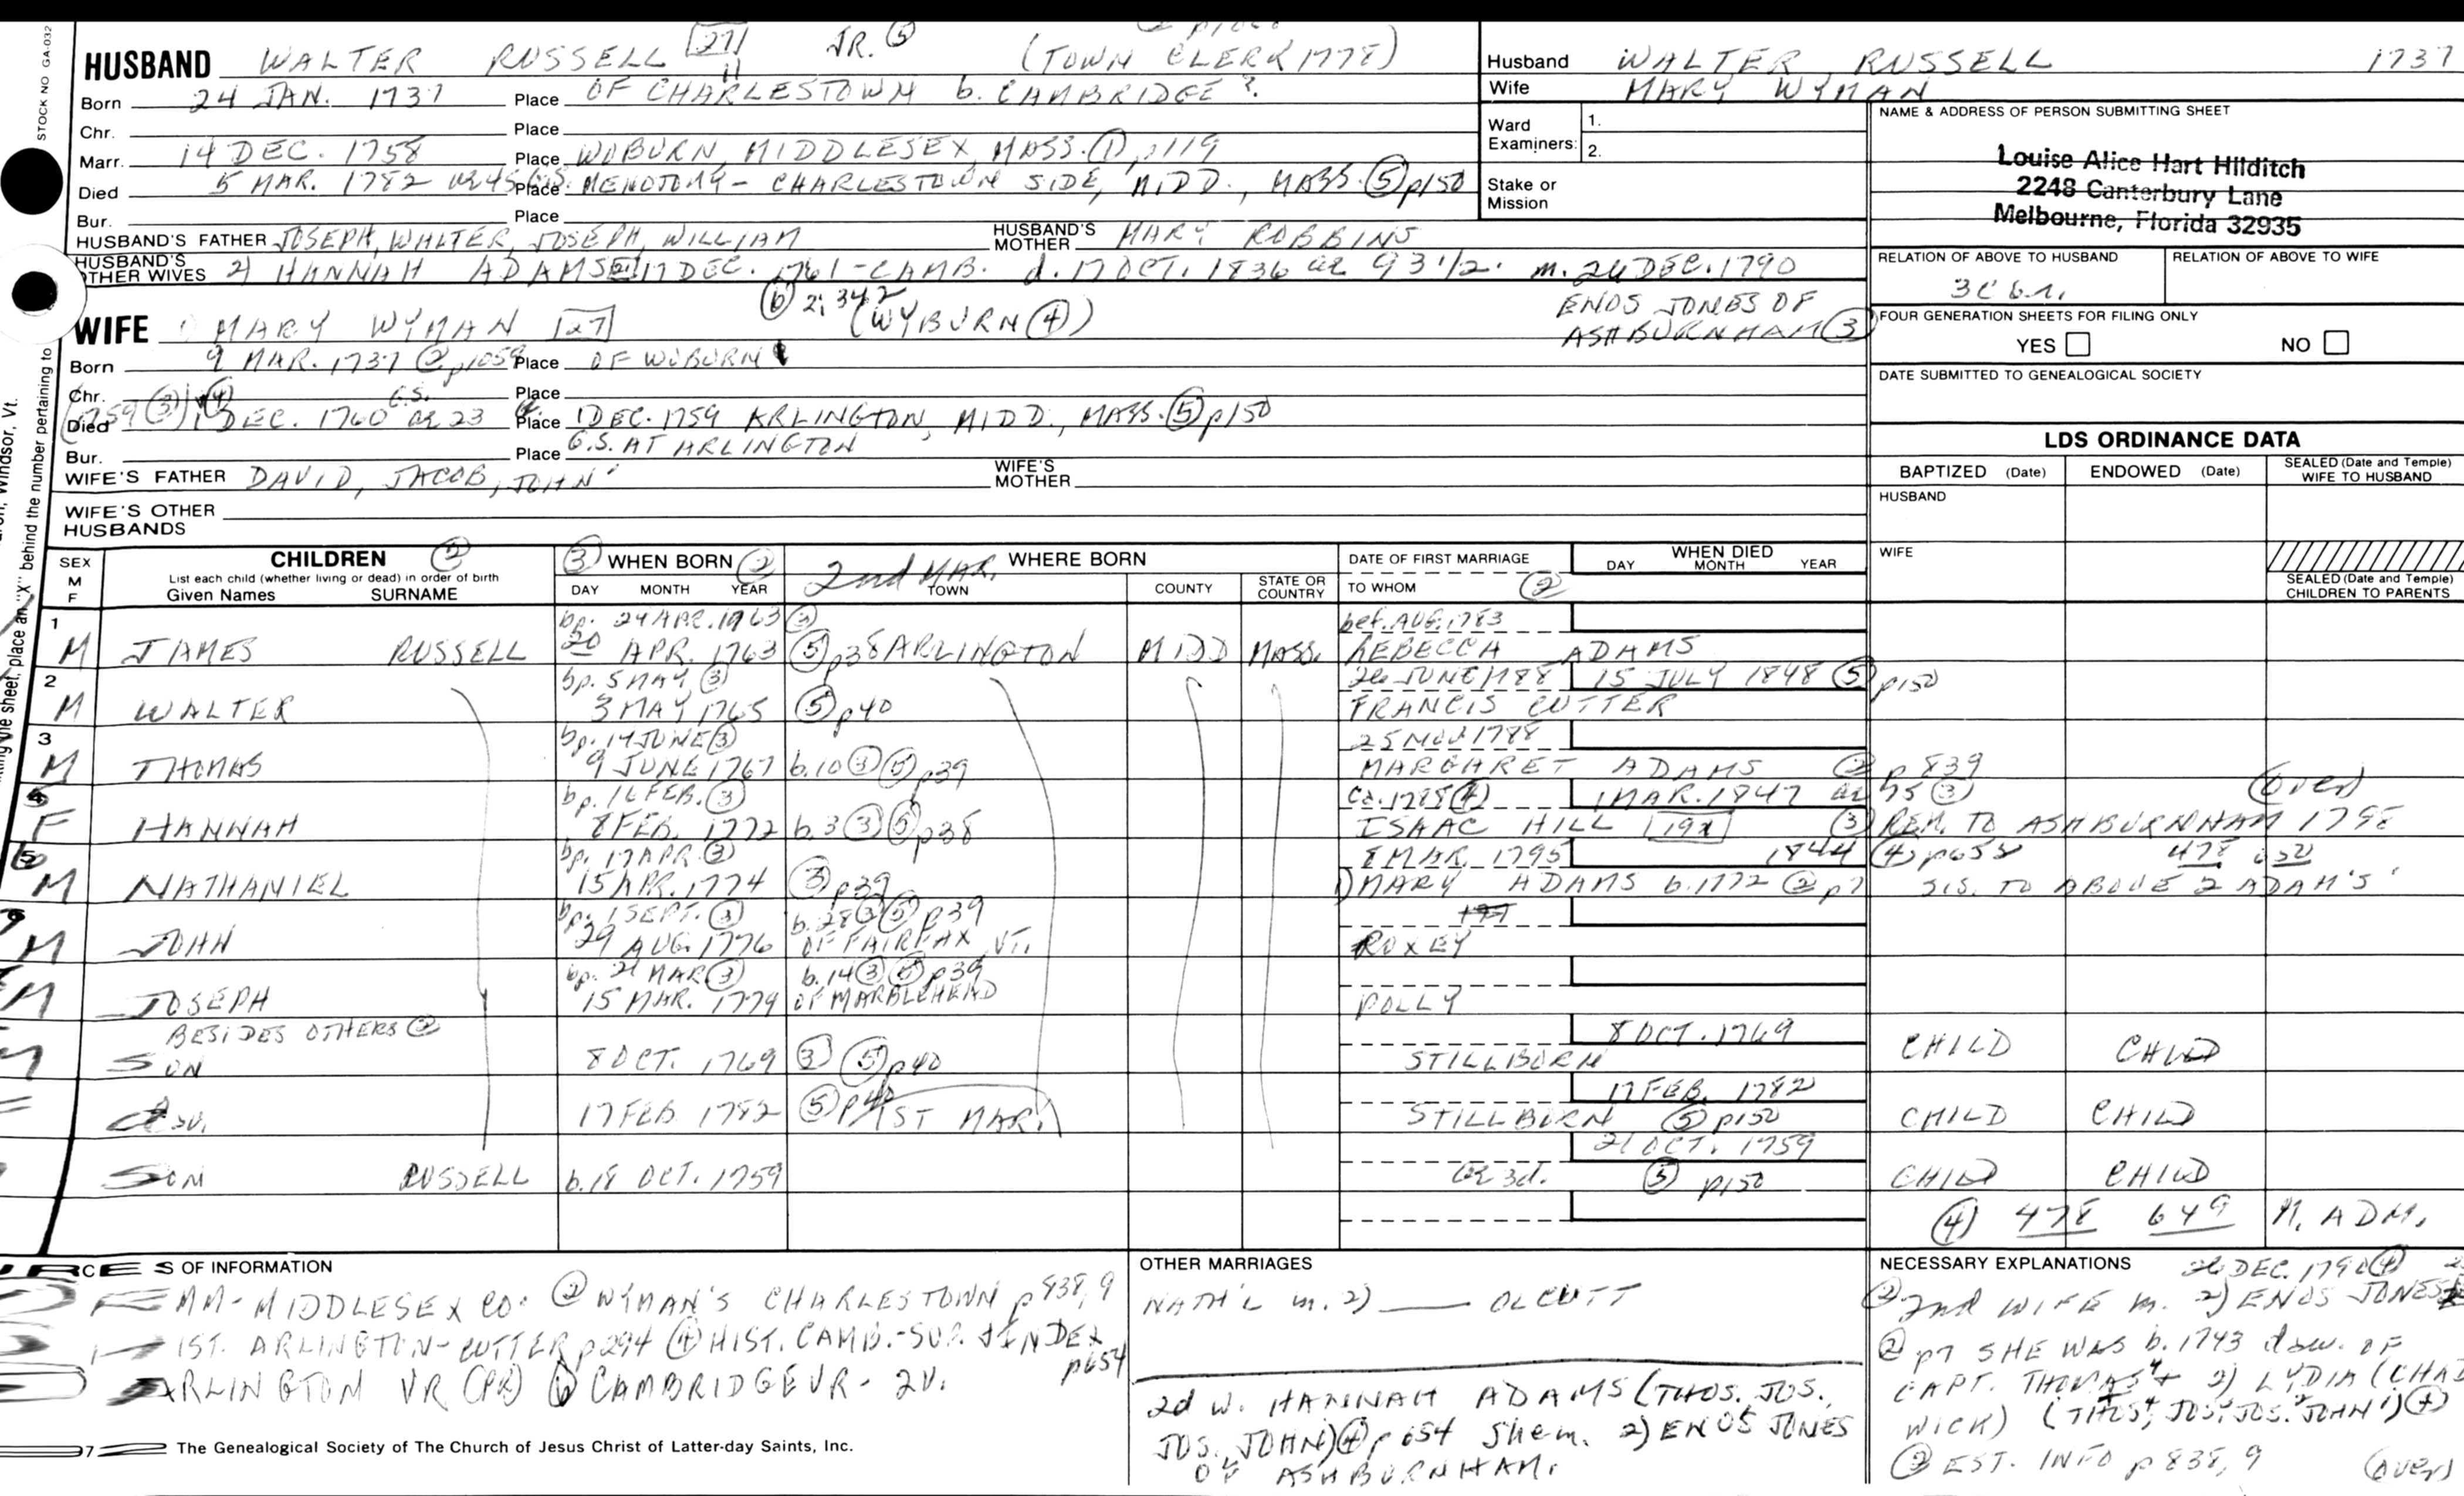 STOCK NO GA-032
HUSBAND WALTER RUSSELL 27 JR. ⑤ (TOWN CLERK 1778)
Born 24 JAN. 1737 Place OF CHARLESTOWN b. CAMBRIDGE ?.
Chr. Place
Marr. 14 DEC. 1758 Place WOBURN, MIDDLESEX, MASS. ①, p119
Died 5 MAR. 1782 ae 45 G.S. Place MENOTOMY - CHARLESTOWN SIDE, MIDD., MASS. ⑤ p150
Bur. Place
HUSBAND'S FATHER JOSEPH, WALTER, JOSEPH, WILLIAM HUSBAND'S MOTHER MARY ROBBINS
HUSBAND'S OTHER WIVES 2) HANNAH ADAMS 17 DEC. 1761 - CAMB. d. 17 OCT. 1836 ae 93 1/2. m. 26 DEC. 1790
⑥ 2:342 ENOS JONES OF
WIFE MARY WYMAN 27 (WYBURN ④) ASHBURNHAM ③
Born 9 MAR. 1737 ② p1059 Place OF WOBURN
Chr. G.S. Place
(1759 ③) ④
Died 1 DEC. 1760 ae 23 Place 1 DEC. 1759 ARLINGTON, MIDD., MASS. ⑤ p150
Bur. Place G.S. AT ARLINGTON
WIFE'S FATHER DAVID, JACOB, JOHN WIFE'S MOTHER
WIFE'S OTHER HUSBANDS
Husband WALTER RUSSELL 1737
Wife MARY WYMAN
Ward Examiners: 1.
2.
Stake or Mission
NAME & ADDRESS OF PERSON SUBMITTING SHEET
Louise Alice Hart Hilditch
2248 Canterbury Lane
Melbourne, Florida 32935
RELATION OF ABOVE TO HUSBAND RELATION OF ABOVE TO WIFE
3C 6.r.
FOUR GENERATION SHEETS FOR FILING ONLY
YES NO
DATE SUBMITTED TO GENEALOGICAL SOCIETY
LDS ORDINANCE DATA
BAPTIZED (Date) ENDOWED (Date) SEALED (Date and Temple) WIFE TO HUSBAND
HUSBAND
WIFE
SEALED (Date and Temple) CHILDREN TO PARENTS
SEX M F CHILDREN ② ③ WHEN BORN ② 2nd MAR. WHERE BORN DATE OF FIRST MARRIAGE WHEN DIED
List each child (whether living or dead) in order of birth
Given Names SURNAME DAY MONTH YEAR TOWN COUNTY STATE OR COUNTRY TO WHOM ② DAY MONTH YEAR
1 bp. 24 APR. 1763 ③ bef. AUG. 1783
M JAMES RUSSELL 20 APR. 1763 ⑤ p38 ARLINGTON MIDD MASS. REBECCA ADAMS
2 bp. 5 MAY ③ 26 JUNE 1788 15 JULY 1848 ⑤ p150
M WALTER 3 MAY 1765 ⑤ p40 FRANCIS CUTTER
3 bp. 14 JUNE ③ 25 NOV 1788
M THOMAS 9 JUNE 1767 b.10 ③ ⑤ p39 MARGARET ADAMS ② p 839
4 bp. 16 FEB. ③ ca. 1788 ④ 1 MAR. 1847 ae 75 ③ (over)
F HANNAH 8 FEB. 1772 b.3 ③ ⑤ p38 ISAAC HILL 192 ③ REM. TO ASHBURNHAM 1798
5 bp. 17 APR. ③ 8 MAR. 1795 1844 ④ p658 478
M NATHANIEL 15 APR. 1774 ③ p39 1) MARY ADAMS b. 1772 ② p7 SIS. TO ABOVE 2 ADAM'S
bp. 1 SEPT. ③ b.28 ③ ⑤ p39
M JOHN 29 AUG. 1776 OF FAIRFAX VT. ROXEY
bp. 21 MAR ③ b.14 ③ ⑤ p39
M JOSEPH 15 MAR. 1779 OF MARBLEHEAD POLLY
BESIDES OTHERS ② 8 OCT. 1769
SON 8 OCT. 1769 ③ ⑤ p40 STILLBORN CHILD CHILD
17 FEB. 1782
dau. 17 FEB 1782 ⑤ p40 STILLBORN ⑤ p150 CHILD CHILD
1ST MAR. 21 OCT. 1759
SON RUSSELL b.18 OCT. 1759 ae 3d. ⑤ p150 CHILD CHILD
④ 478 649 M. ADM.
S OF INFORMATION
MIDDLESEX CO. ② WYMAN'S CHARLESTOWN p 838,9
IST. ARLINGTON - CUTTER p294 ④ HIST. CAMB. - SUP. & INDEX p654
ARLINGTON VR (PR) ⑥ CAMBRIDGE VR - 2V.
The Genealogical Society of The Church of Jesus Christ of Latter-day Saints, Inc.
OTHER MARRIAGES
NATH'L m. 2) ___ OLCUTT
2d W. HANNAH ADAMS (THOS. JOS.
JOS. JOHN) ④ p 654 She m. 2) ENOS JONES
OF ASHBURNHAM.
NECESSARY EXPLANATIONS 26 DEC. 1790 ④
② 2nd WIFE m. 2) ENOS JONES
② p7 SHE WAS b. 1743 dau. OF
CAPT. THOMAS⁴ + 2) LYDIA (CHAD
WICK) (THOS⁴, JOS³, JOS.² JOHN¹) ④
② EST. INFO p 838, 9 (over)